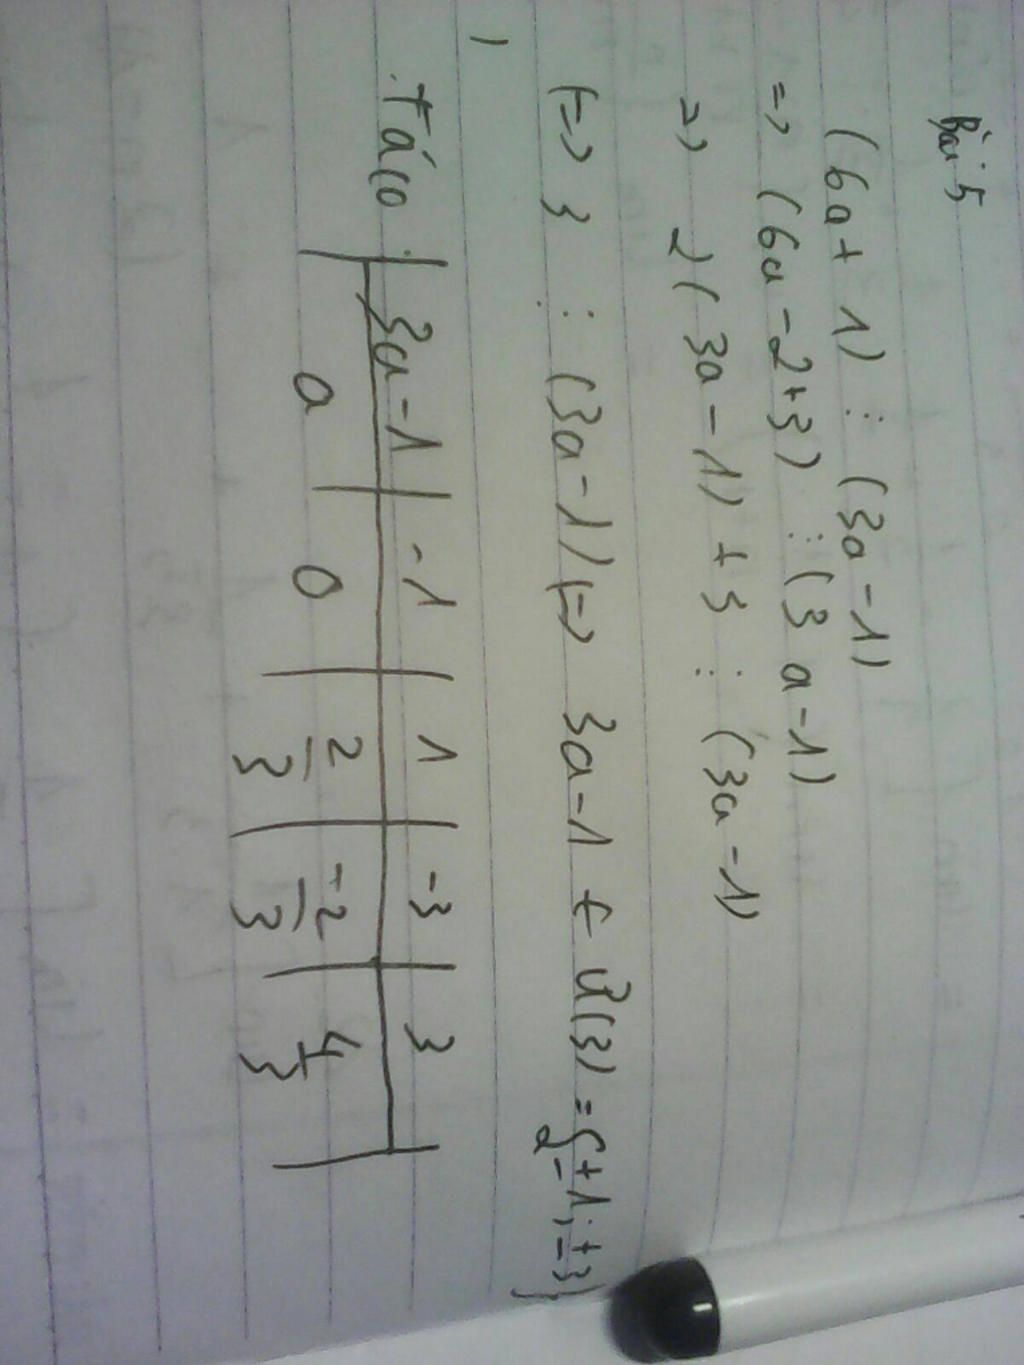 Bài 5
(6a + 1) ⋮ (3a - 1)
=> (6a - 2 + 3) ⋮ (3a - 1)
=> 2(3a - 1) + 3 ⋮ (3a - 1)
<=> 3 ⋮ (3a - 1) <=> 3a - 1 ∈ Ư(3) = {±1; ±3}
Ta có:
3a - 1 | -1 | 1 | -3 | 3
a | 0 | 2/3 | -2/3 | 4/3